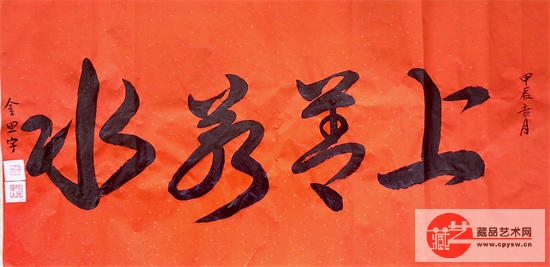 甲辰吉月
上善若水
藏艺
藏品艺术网
www.cpysw.cn